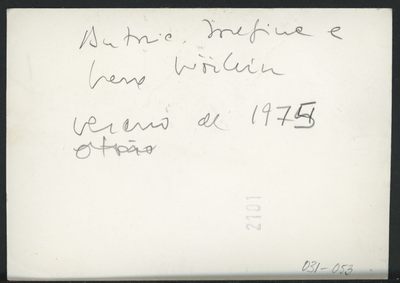 Antonio, Josefine e
Vera
verano de 1975
otoño
2101
031-053